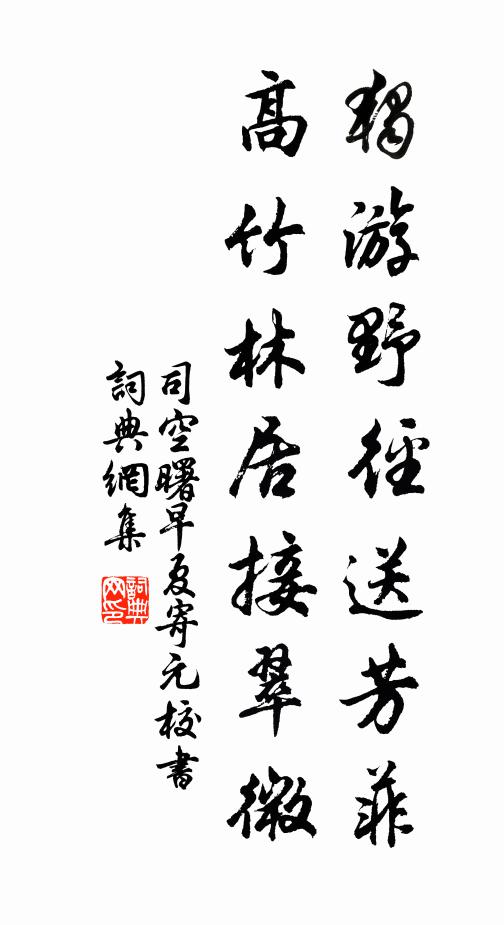 獨游野徑送芳菲
高竹林居接翠微
司空曙早夏寄元校書
詞典網集
詞典網印